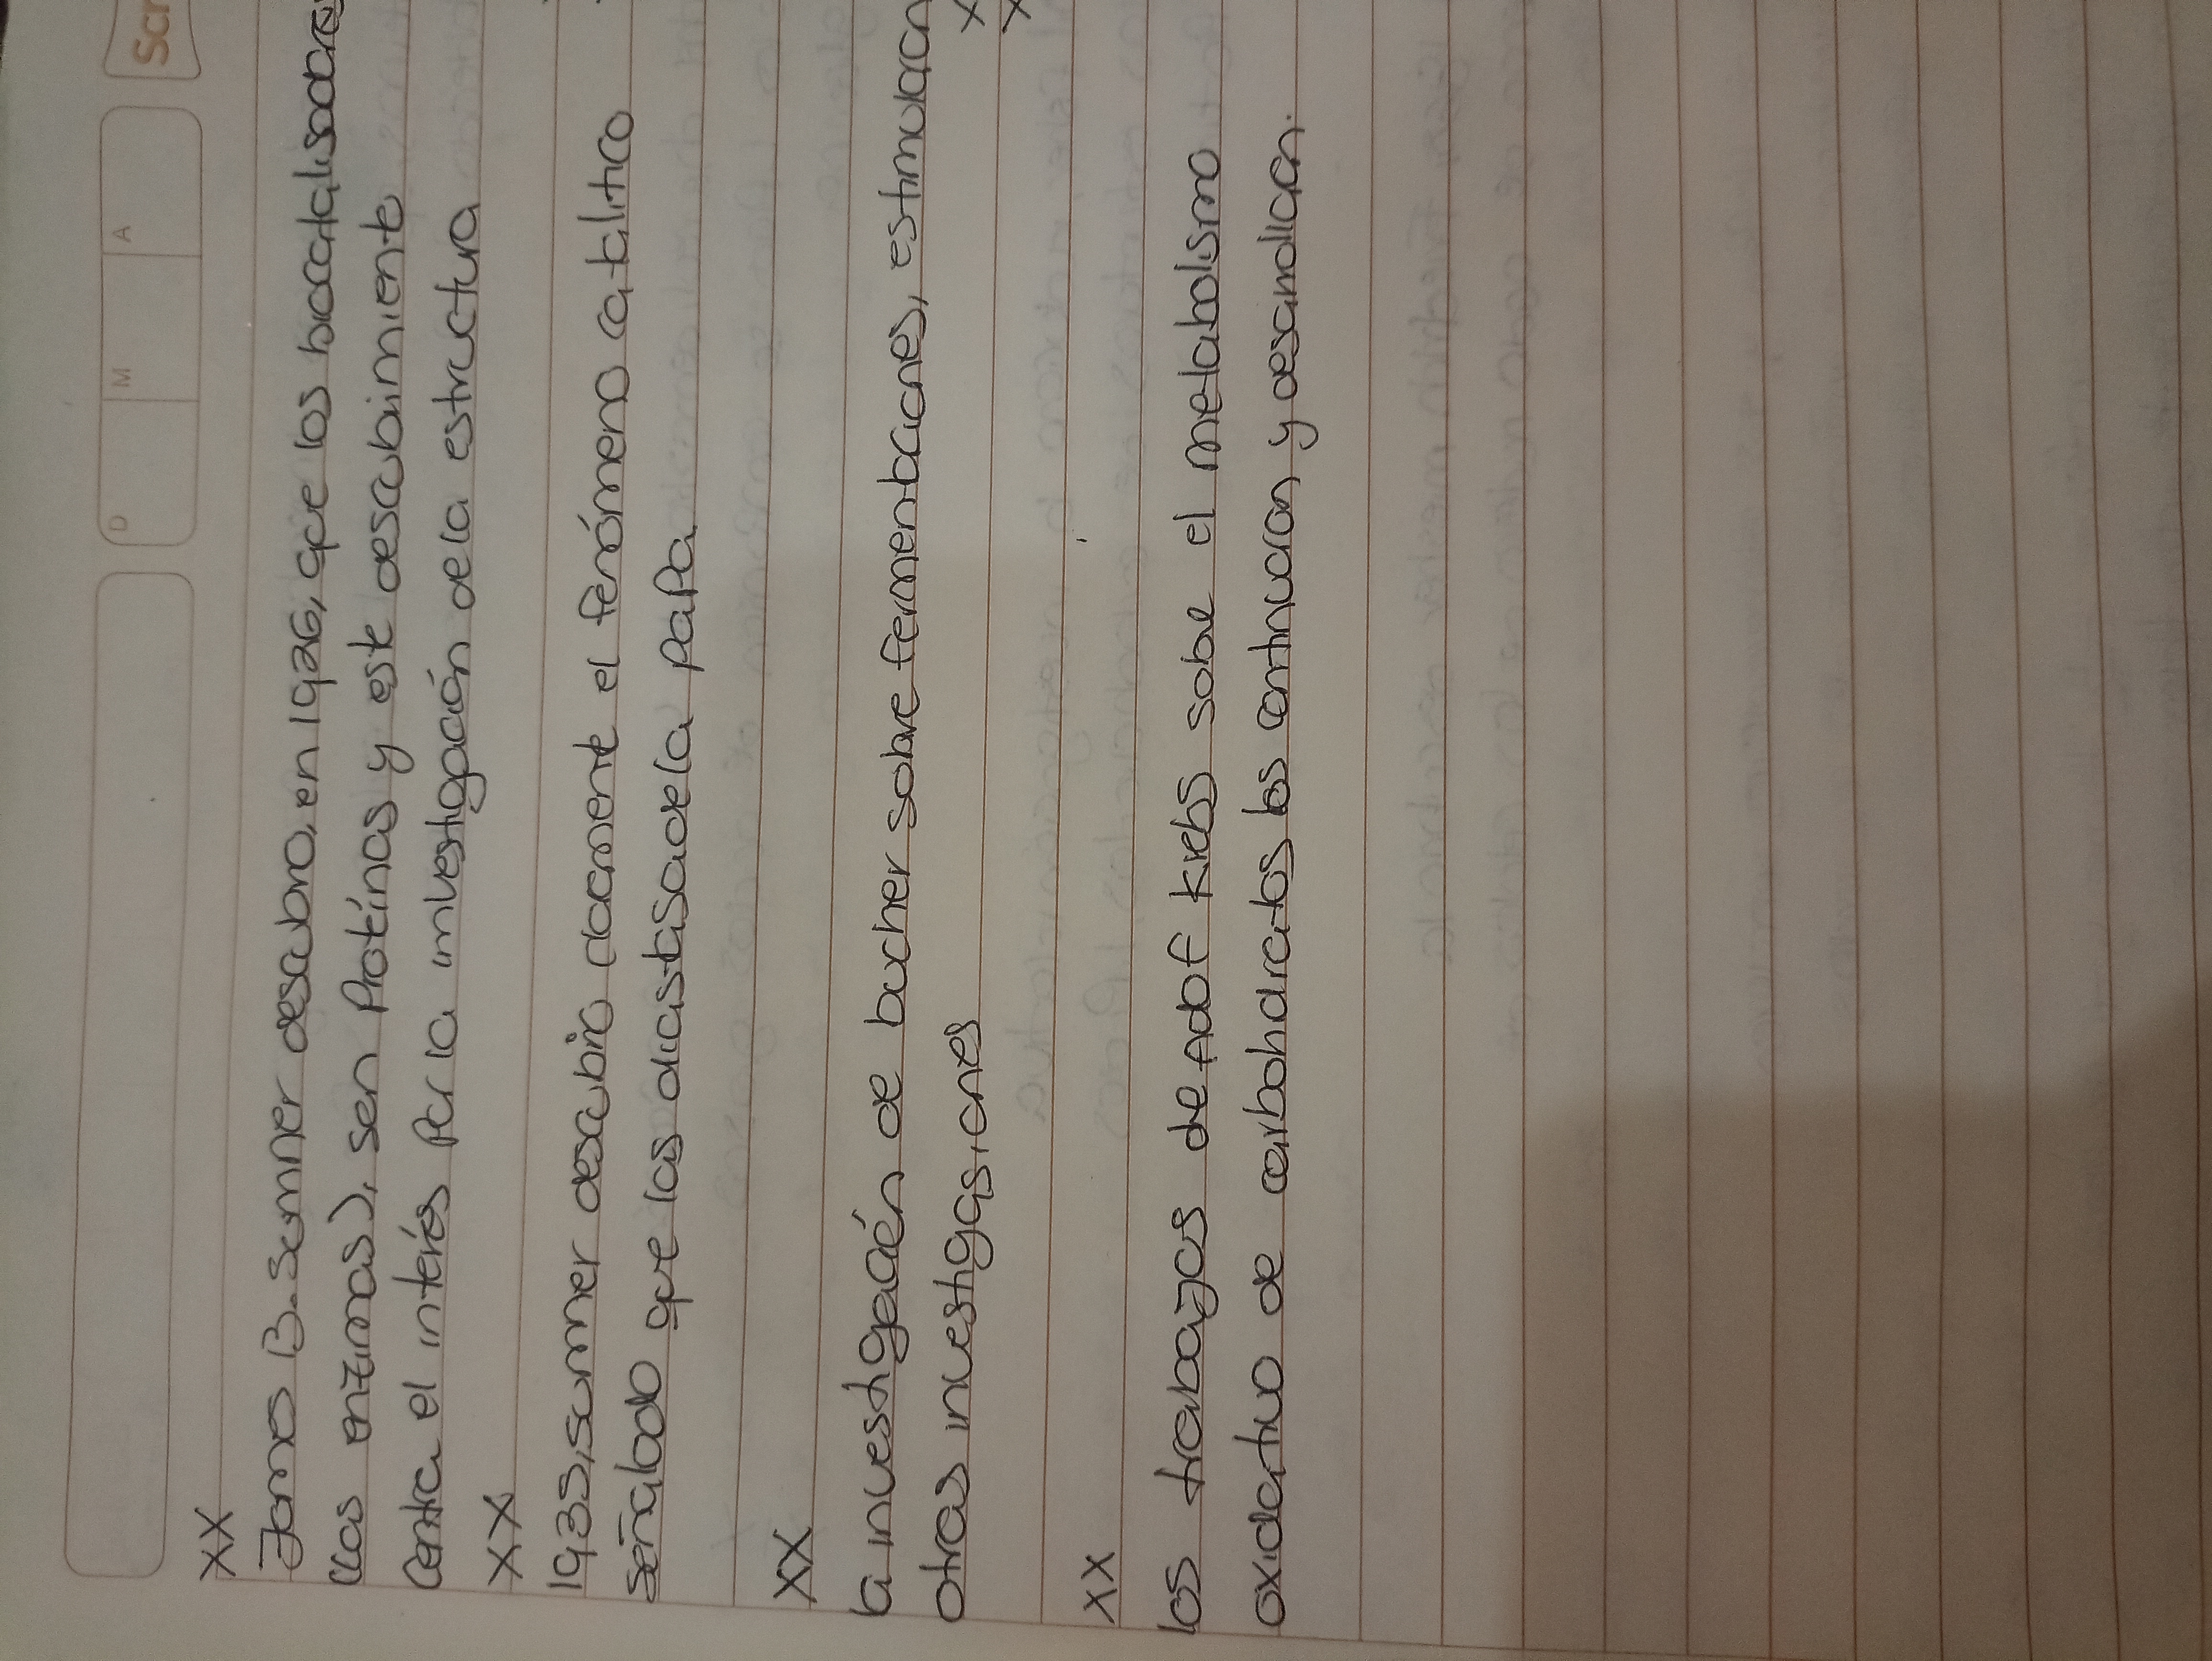 Scr
D M A
XX
James B. Sumner descubrio, en 1926, que los biocatalisadores
(las enzimas), sen Protínas y este descubimiento
Centra el interés por la investigación dela estructura
XX
1935, sumner descubrio camente el fenómeno catalitico
señalado que las diastasa dela papa
XX
la investigación de bucher sobre fermentaciones, estimularon
otras investigasiones
XX
los trabajos de Adof kiebs sobre el metabolismo
oxidativo de carbohdratos los continuaron y desarrollaron.